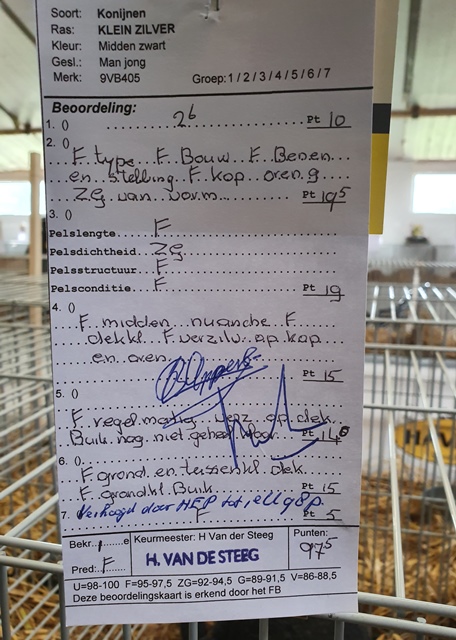 Soort: Konijnen
Ras: KLEIN ZILVER
Kleur: Midden zwart
Gesl.: Man jong
Merk: 9VB405 Groep: 1 / 2 / 3 / 4 / 5 / 6 / 7
Beoordeling:
1. () 26 Pt 10
2. ()
F. type F. Bouw F. Benen
en stelling F kop oren g
ZG van vorm Pt 195
3. ()
Pelslengte F
Pelsdichtheid ZG
Pelsstructuur F
Pelsconditie F Pt 19
4. ()
F midden nuanche F
dekkl. F verzilv op kop
en oren Pt 15
5. ()
F regelmatig verz op dek
Buik nog niet geheel klaar Pt 14
6. ()
F grond en tussenkl dek
F grondkl. Buik Pt 15
7. Verhoogd door HEP tot 98p
F Pt 5
Bekr. e Keurmeester: H Van der Steeg Punten:
Pred.: F H. VAN DE STEEG 975
U=98-100 F=95-97,5 ZG=92-94,5 G=89-91,5 V=86-88,5
Deze beoordelingskaart is erkend door het FB
HAV